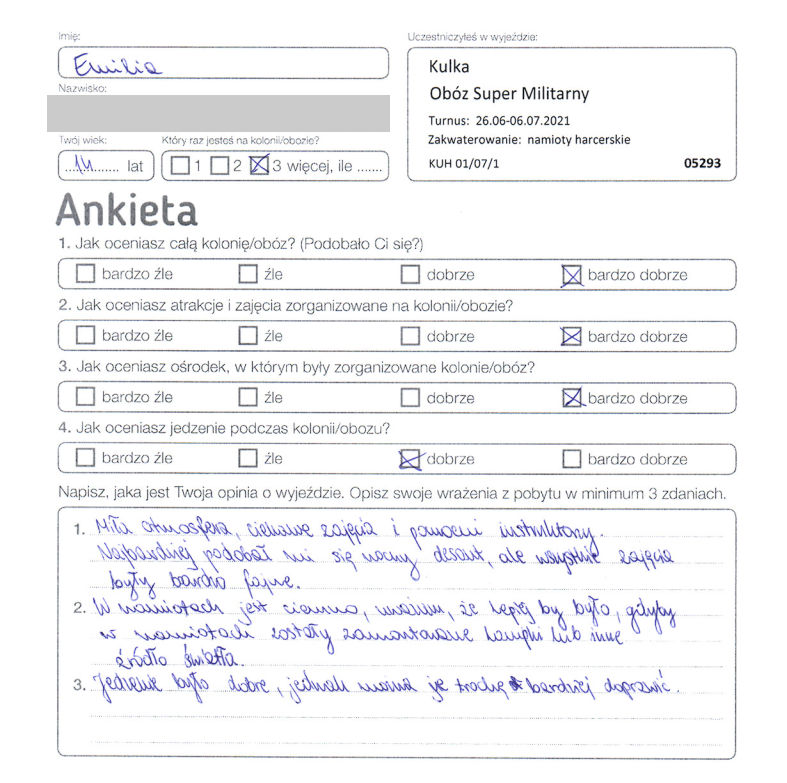 Imię:
Emilia
Nazwisko:
Twój wiek:
14 lat
Który raz jesteś na kolonii/obozie?
1 2 3 więcej, ile .......
Uczestniczyłeś w wyjeździe:
Kulka
Obóz Super Militarny
Turnus: 26.06-06.07.2021
Zakwaterowanie: namioty harcerskie
KUH 01/07/1 05293
Ankieta
1. Jak oceniasz całą kolonię/obóz? (Podobało Ci się?)
bardzo źle źle dobrze bardzo dobrze
2. Jak oceniasz atrakcje i zajęcia zorganizowane na kolonii/obozie?
bardzo źle źle dobrze bardzo dobrze
3. Jak oceniasz ośrodek, w którym były zorganizowane kolonie/obóz?
bardzo źle źle dobrze bardzo dobrze
4. Jak oceniasz jedzenie podczas kolonii/obozu?
bardzo źle źle dobrze bardzo dobrze
Napisz, jaka jest Twoja opinia o wyjeździe. Opisz swoje wrażenia z pobytu w minimum 3 zdaniach.
1. Miła atmosfera, ciekawe zajęcia i pomocni instruktorzy.
Najbardziej podobał mi się nocny desant, ale wszystkie zajęcia
były bardzo fajne.
2. W namiotach jest ciemno, uważam, że lepiej by było, gdyby
w namiotach zostały zamontowane lampki lub inne
źródło światła.
3. Jedzenie było dobre, jednak można je trochę bardziej doprawić.